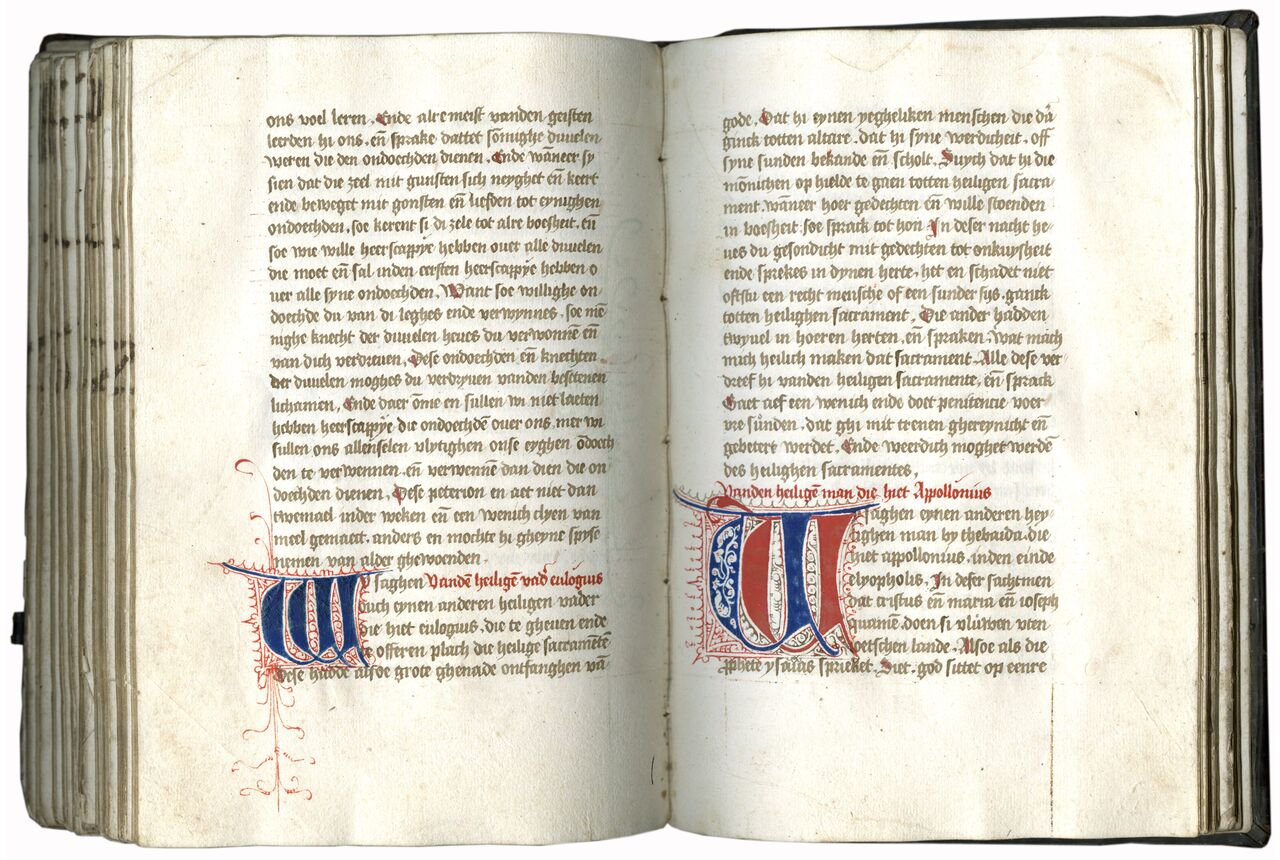 ons voel leren. Ende alremeist vanden geisten
leerden hi ons. en̄ sprake dattet so͞nighe duuelen
weren die den ondoechden dienen. Ende wāneer sy
sien dat die zeel mit gunsten sich neyghet en̄ keert
ende beweget mit gonsten en̄ liefden tot eynighen
ondoechden. soe kerent si di zele tot alre boesheit. en̄
soe wie wille heerscappye hebben ouer alle duuelen
die moet en̄ sal inden eersten heerscappye hebben o
uer alle syne ondoechden. Want soe willighe on
doechde du van di leghes ende verwynnes. soe me͞
nighe knecht der duuelen heues du verwonne͞ en̄
van dich verdreuen. Dese ondoechden en̄ knechten
der duuelen moghes du verdryuen vanden besetenen
lichamen. Ende daer o͞me en sullen wi niet laeten
hebben heerscappye die ondoechde͞ ouer ons. mer wi
sullen ons allenselen vlytighen onse eyghen o͞doech
den te verwennen. en̄ verwenne͞ dan dien die on
doechden dienen. Dese peterion en aet niet dan
twemael inder weken en̄ een wenich clyen van
meel gemaect. anders en mocht hi gheyne spyse
nemen van alder ghewoenden
Vy saghen Vande͞ heilige͞ vad̉ eulogius
ouch eynen anderen heiligen vader
die hiet eulogius. die te gheuen ende
te offeren plach die heilige sacramente͞
Dese hadde alsoe grote ghenade ontfanghen va͞
gode. Dat hi eynen yegheliken menschen die da͞
ginck totten altare. dat hi syne werdicheit. off
syne sunden bekande en̄ scholt. Suych dat hi die
mo͞nichen op hielde te gaen totten heiligen sacra
ment. wāneer hoer gedechten en̄ wille stoenden
in boesheit soe sprack tot hon In deser nacht he
ues du gesondicht mit gedechten tot onkuysheit
ende sprekes in dynen herte. het en schadet niet
oftstu een recht mensche of een sunder sys. ganck
totten heilighen sacrament. Die ander hadden
twyuel in hoeren herten. en̄ spraken. wat mach
mich heilich maken dat sacrament. Alle dese ver
dreef hi vanden heiligen sacramente. en̄ sprack
Gaet aef een wenich ende doet penitencie voer
vre sunden. dat ghi mit trenen ghereynicht en̄
gebetert werdet. Ende weerdich moghet werde͞
des heilighen sacramentes.
Vanden heilige͞ man die hiet Appollonius
Vy saghen eynen anderen hey
lighen man by thebaida. die
hiet appollonius. inden einde
elyopholis. In deser sachtmen
dat cristus en̄ maria en̄ ioseph
quame͞. doen si vlùwen vten
ioetschen lande. Alsoe als die
p͞phete ysaias sprieket. Siet. god sittet op eenre